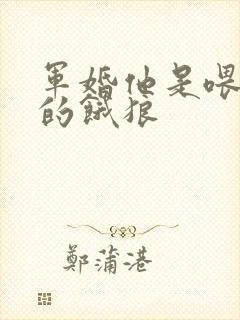 軍婚他是喂
的餓狼
鄭蒲港